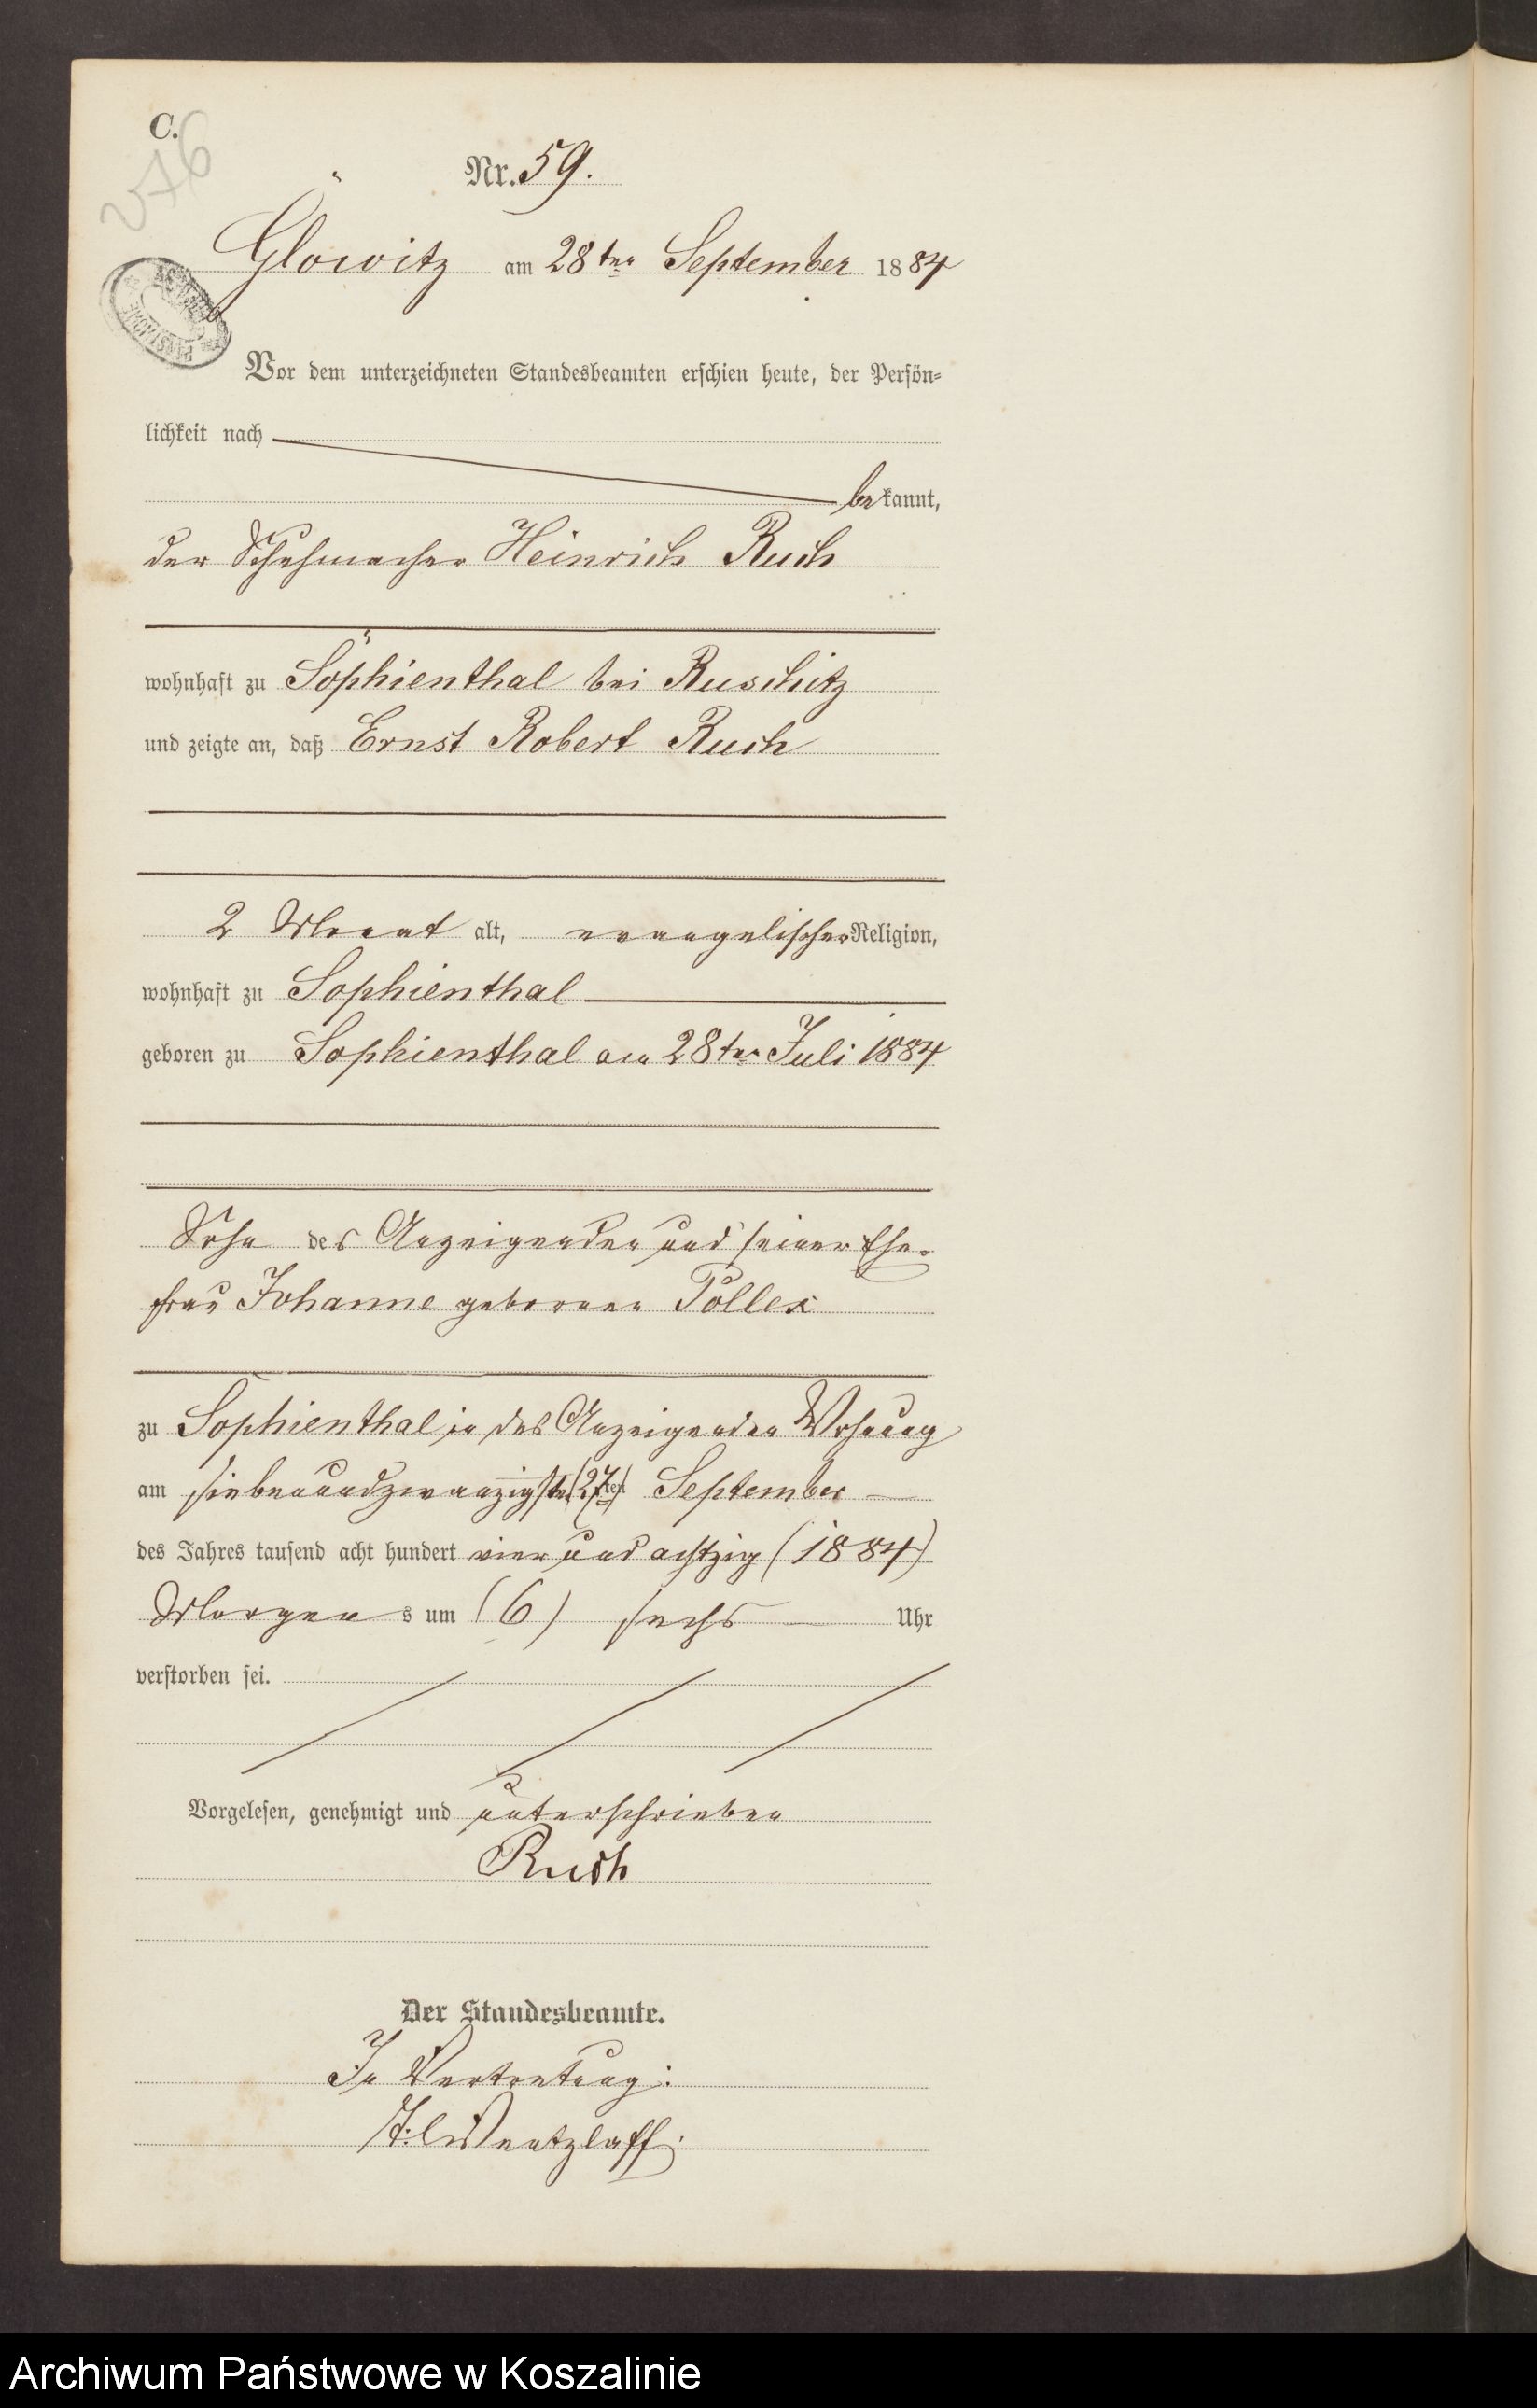 C.
276
Nr. 59.
Glowitz am 28ten September 1884
Vor dem unterzeichneten Standesbeamten erschien heute, der Persön-
lichkeit nach
bekannt,
der Schuhmacher Heinrich Ruch
wohnhaft zu Sophienthal bei Ruschitz
und zeigte an, daß Ernst Robert Ruch
2 Monat alt, evangelischer Religion,
wohnhaft zu Sophienthal
geboren zu Sophienthal am 28ten Juli 1884
Sohn des Anzeigenden und seiner Ehe-
frau Johanne geborenen Pollex
zu Sophienthal in des Anzeigenden Wohnung
am siebenundzwanzigsten (27ten) September
des Jahres tausend acht hundert vier und achtzig (1884)
Morgens um (6) sechs Uhr
verstorben sei.
Vorgelesen, genehmigt und unterschrieben
Ruch
Der Standesbeamte.
In Vertretung:
Wentzlaff
Archiwum Państwowe w Koszalinie